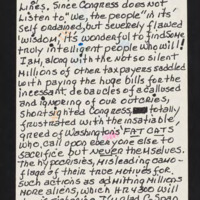 Lines. Since Congress does not
listen to "we, the people" in its
self ordained, but severely flawed
"wisdom," it's wonderful to find some
truly intelligent people who will!
I am, along with the not so silent
millions of other tax payers saddled
with paying the huge bills for the
incessant, debacles of a callused
and ignoring of our outcries,
short sighted Congress totally
frustrated with the insatiable,
greed of Washington's FAT CATS
who, call upon everyone else to
sacrifice but never themselves.
The hypocrisies, misleading camo-
flage of their true motives for,
such actions as admitting millions
more aliens, which HR 4300 will